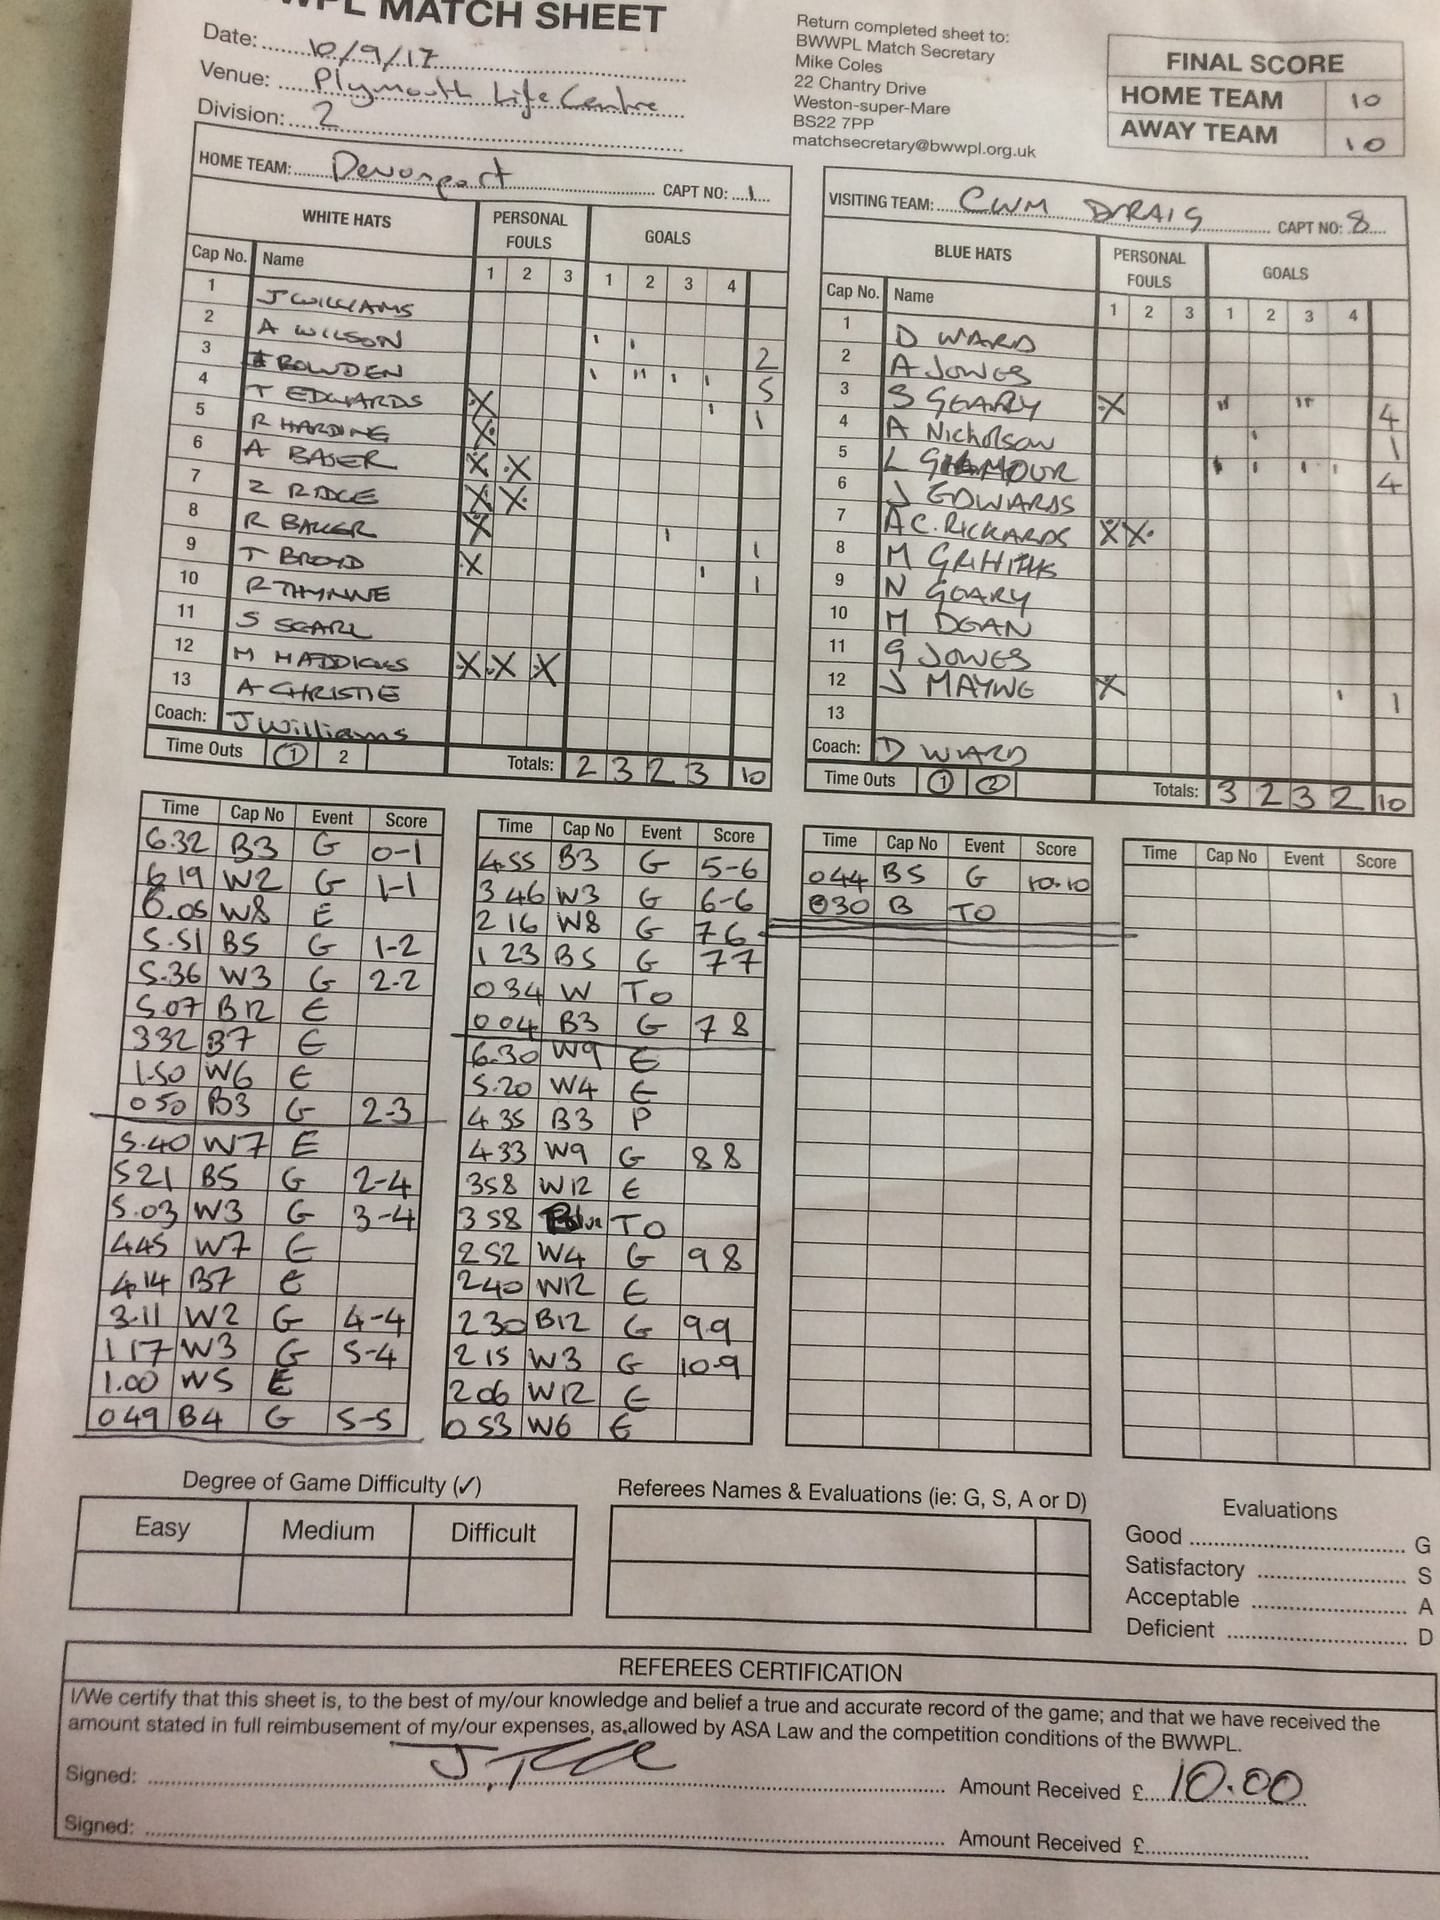 WPL MATCH SHEET
Date: 10/9/17
Venue: Plymouth Life Centre
Division: 2
Return completed sheet to:
BWWPL Match Secretary
Mike Coles
22 Chantry Drive
Weston-super-Mare
BS22 7PP
matchsecretary@bwwpl.org.uk
FINAL SCORE
HOME TEAM 10
AWAY TEAM 10
HOME TEAM: Devonport CAPT NO: 1
WHITE HATS PERSONAL FOULS GOALS
Cap No. Name 1 2 3 1 2 3 4
1 J WILLIAMS
2 A WILSON ' ' 2
3 BOWDEN ' '' ' ' 5
4 T EDWARDS X ' 1
5 R HARDING X
6 A BAJER X X
7 Z RIDGE X X
8 R BAKER X ' 1
9 T BROYD X ' 1
10 R THYNNE
11 S SEARL
12 M MADDICKS X X X
13 A CHRISTIE
Coach: J Williams
Time Outs 1 2 Totals: 2 3 2 3 10
VISITING TEAM: CWM DRAIG CAPT NO: 8
BLUE HATS PERSONAL FOULS GOALS
Cap No. Name 1 2 3 1 2 3 4
1 D WARD
2 A JONES
3 S GEARY X '' '' 4
4 A Nicholson ' 1
5 L GILMOUR ' ' ' ' 4
6 J EDWARDS
7 A C. RICKARDS X X
8 M GRIFFITHS
9 N GEARY
10 M DEAN
11 G JONES
12 J MAYNE X ' 1
13
Coach: D WARD
Time Outs 1 2 Totals: 3 2 3 2 10
Time Cap No Event Score
6.32 B3 G 0-1
6 19 W2 G 1-1
6.05 W8 E
5.51 B5 G 1-2
5.36 W3 G 2-2
5.07 B12 E
332 B7 E
1.50 W6 E
0 50 B3 G 2-3
5.40 W7 E
521 B5 G 2-4
5.03 W3 G 3-4
445 W7 E
414 B7 E
3.11 W2 G 4-4
1 17 W3 G 5-4
1.00 W5 E
0 49 B4 G 5-5
Time Cap No Event Score
4.55 B3 G 5-6
3 46 W3 G 6-6
2 16 W8 G 7 6
1 23 B5 G 7 7
0 34 W TO
0 04 B3 G 7 8
6.30 W9 E
5.20 W4 E
4 35 B3 P
4 33 W9 G 8 8
358 W12 E
3 58 Blue TO
2 52 W4 G 9 8
2 40 W12 E
2 30 B12 G 9 9
2 15 W3 G 10-9
2 06 W12 E
0 53 W6 E
Time Cap No Event Score
0 44 B5 G 10.10
0 30 B TO
Time Cap No Event Score
Degree of Game Difficulty (✓)
Easy Medium Difficult
Referees Names & Evaluations (ie: G, S, A or D)
Evaluations
Good G
Satisfactory S
Acceptable A
Deficient D
REFEREES CERTIFICATION
I/We certify that this sheet is, to the best of my/our knowledge and belief a true and accurate record of the game; and that we have received the
amount stated in full reimbusement of my/our expenses, as allowed by ASA Law and the competition conditions of the BWWPL.
Signed: Amount Received £ 10.00
Signed: Amount Received £